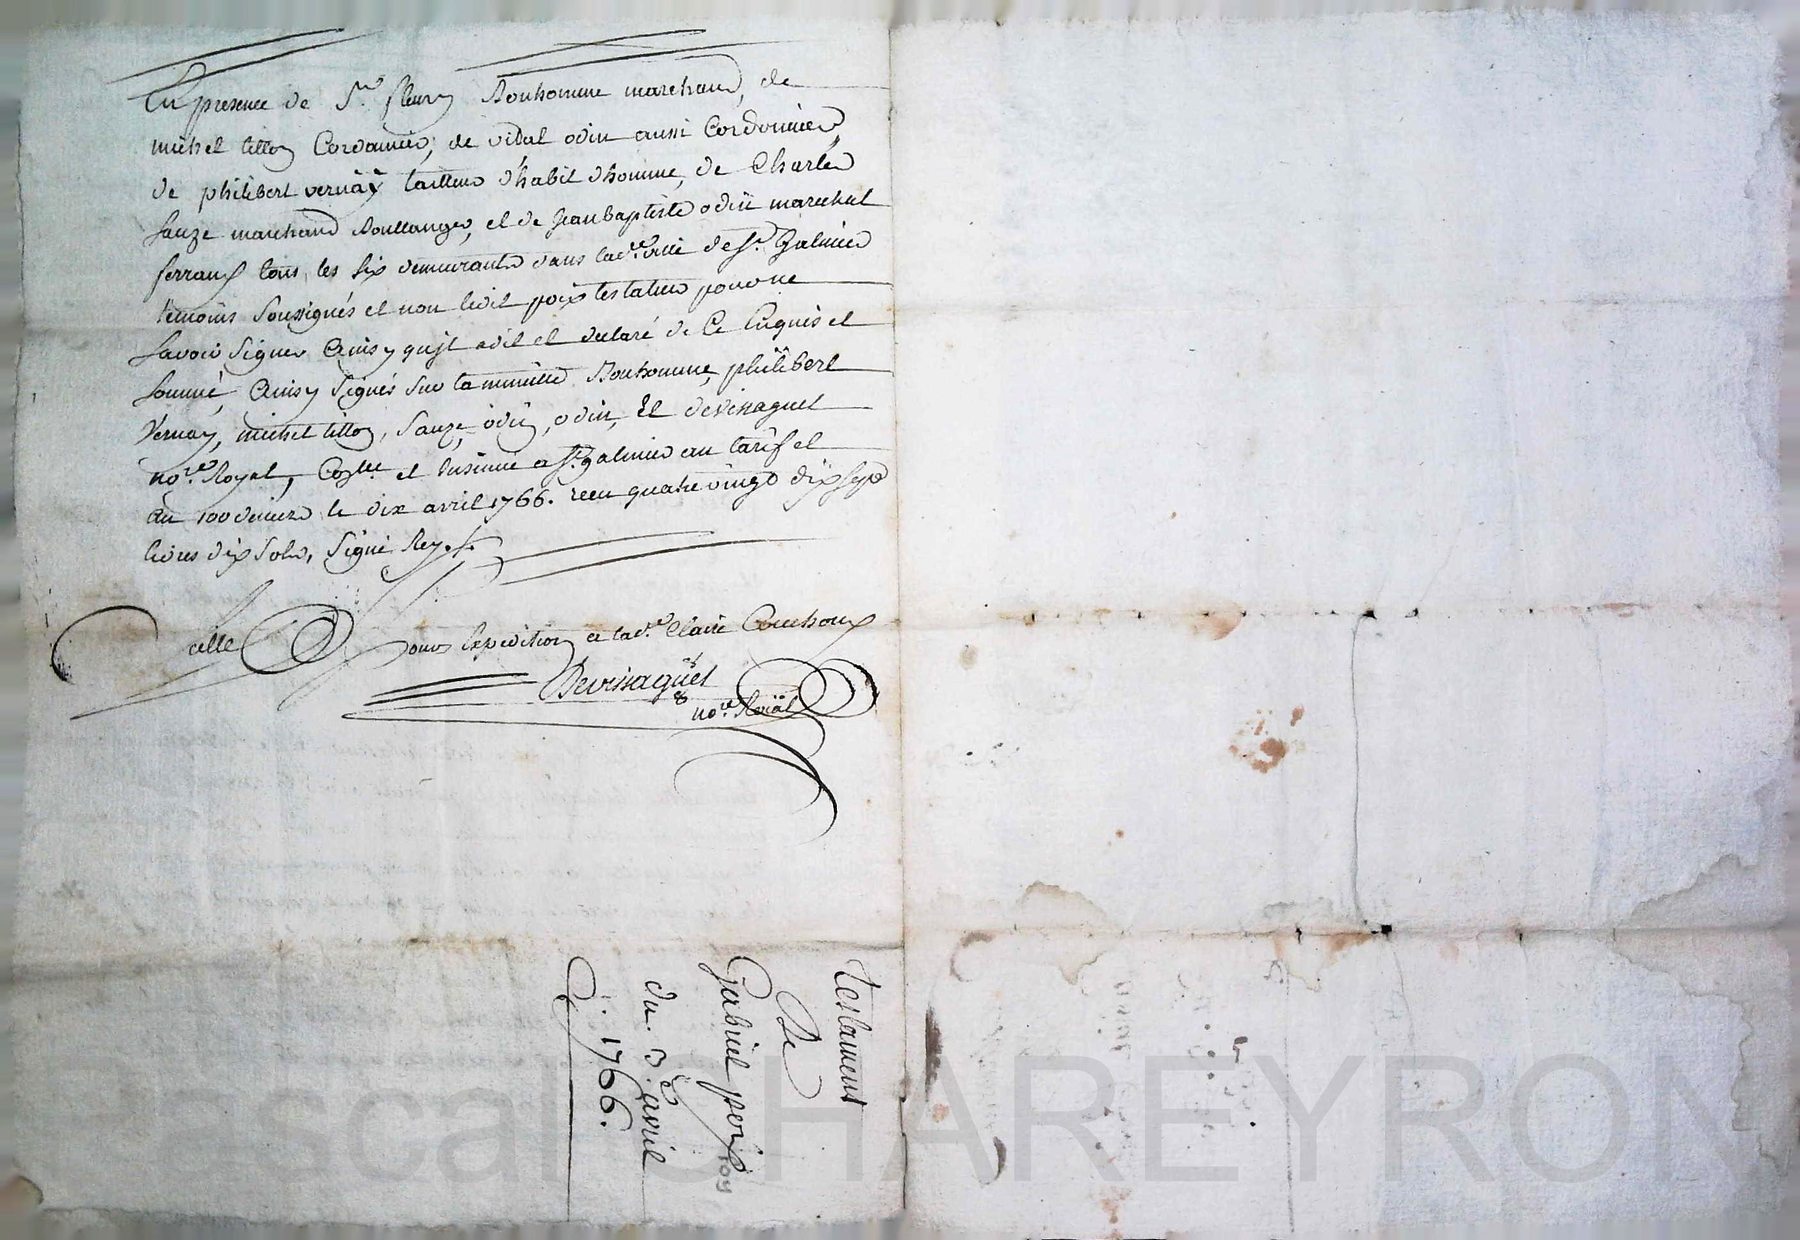 En presence de Sr. fleury Bonhomme marchand, de
michel tilloy Cordonnier, de vidal odin aussi Cordonnier,
de philibert vernaÿ tailleur d'habit d'homme, de Charles
Sauze marchand Boullanger, et de Jean baptiste odin marechal
ferrant tous les six demeurants dans lad.e ville de St. Galmier
temoins soussignés et non ledit poix testateur pour ne
savoir signer Ainsy qu'il a dit et declaré de Ce Enquis et
sommé, Ainsy signés sur la minutte Bonhomme, philibert
Vernay, michel tilloy, Sauze, odin, odin, Et devissaguet
no.re Royal, Coll.ée et Insinué a St. galmier au tarif et
au 100 denier le dix avril 1766. receu quatre vingt dix sept
livres dix sols, Signé Rey./.
Pour Expedition a lad.e Claire Couchoux
Devissaguet
no.re Roïal
testament
De
Gabriel poix
du 3.e avril
1766.
104
Pascal CHAREYRON